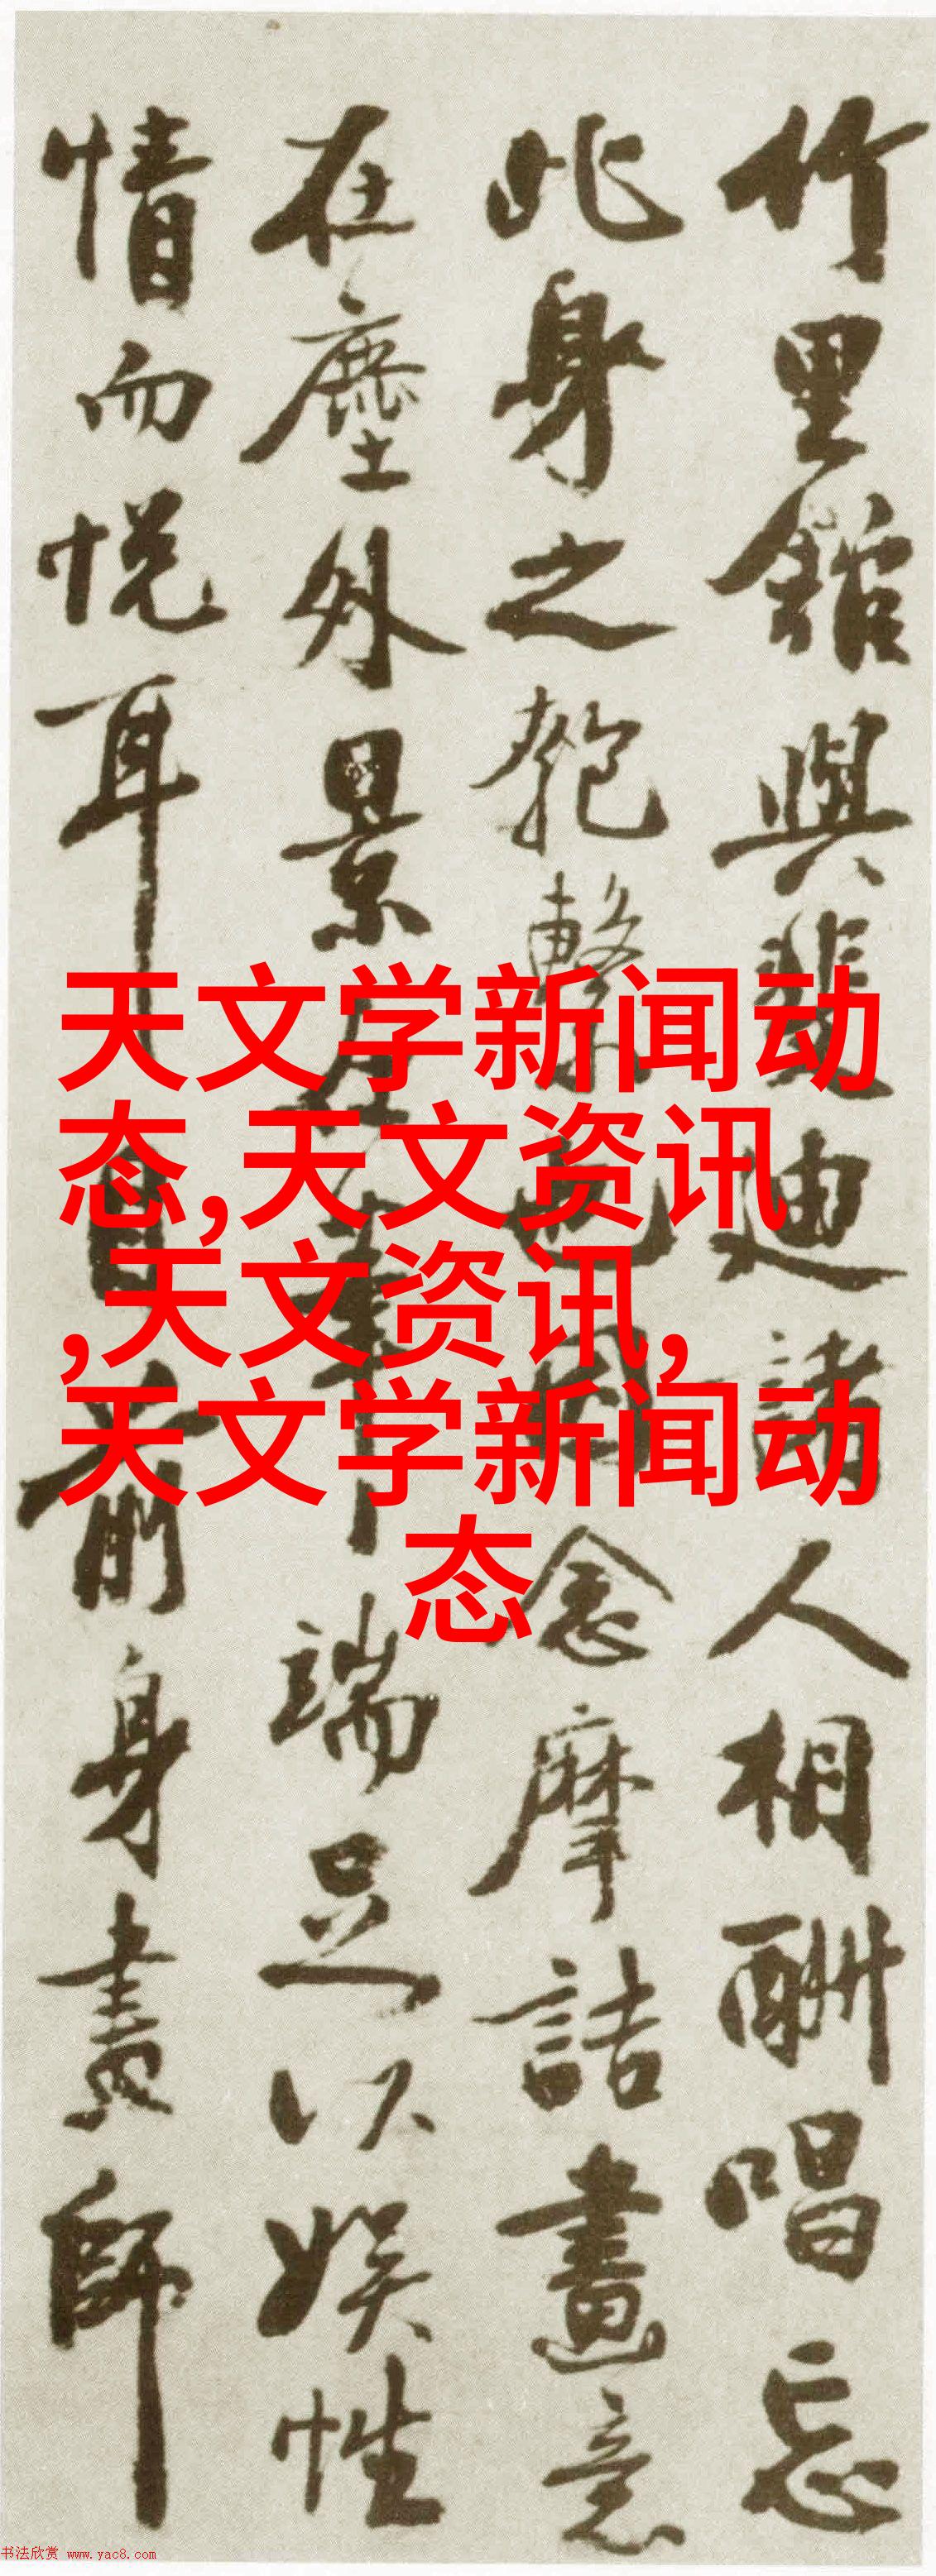 竹里館與裴迪諸人相酬唱忘
此身之匏繫也因念摩詰畫意
在塵外景在筆端足以娱性
情而悦耳目前身畫師
天文学新闻动
态,天文资讯
,天文资讯,
天文学新闻动
态
书法欣赏 www.yac8.com